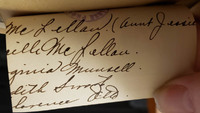 Mc Lellan. (Aunt Jessie
ille McLellan.
ginia Munsell.
dith
lorence